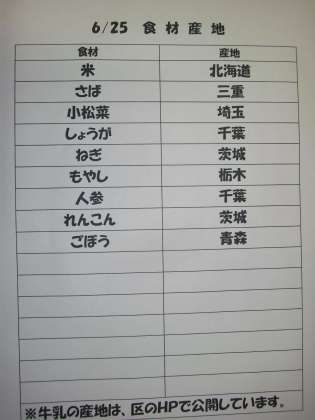 6/25 食材産地
食材 産地
米 北海道
さば 三重
小松菜 埼玉
しょうが 千葉
ねぎ 茨城
もやし 栃木
人参 千葉
れんこん 茨城
ごぼう 青森
※牛乳の産地は、区のHPで公開しています。